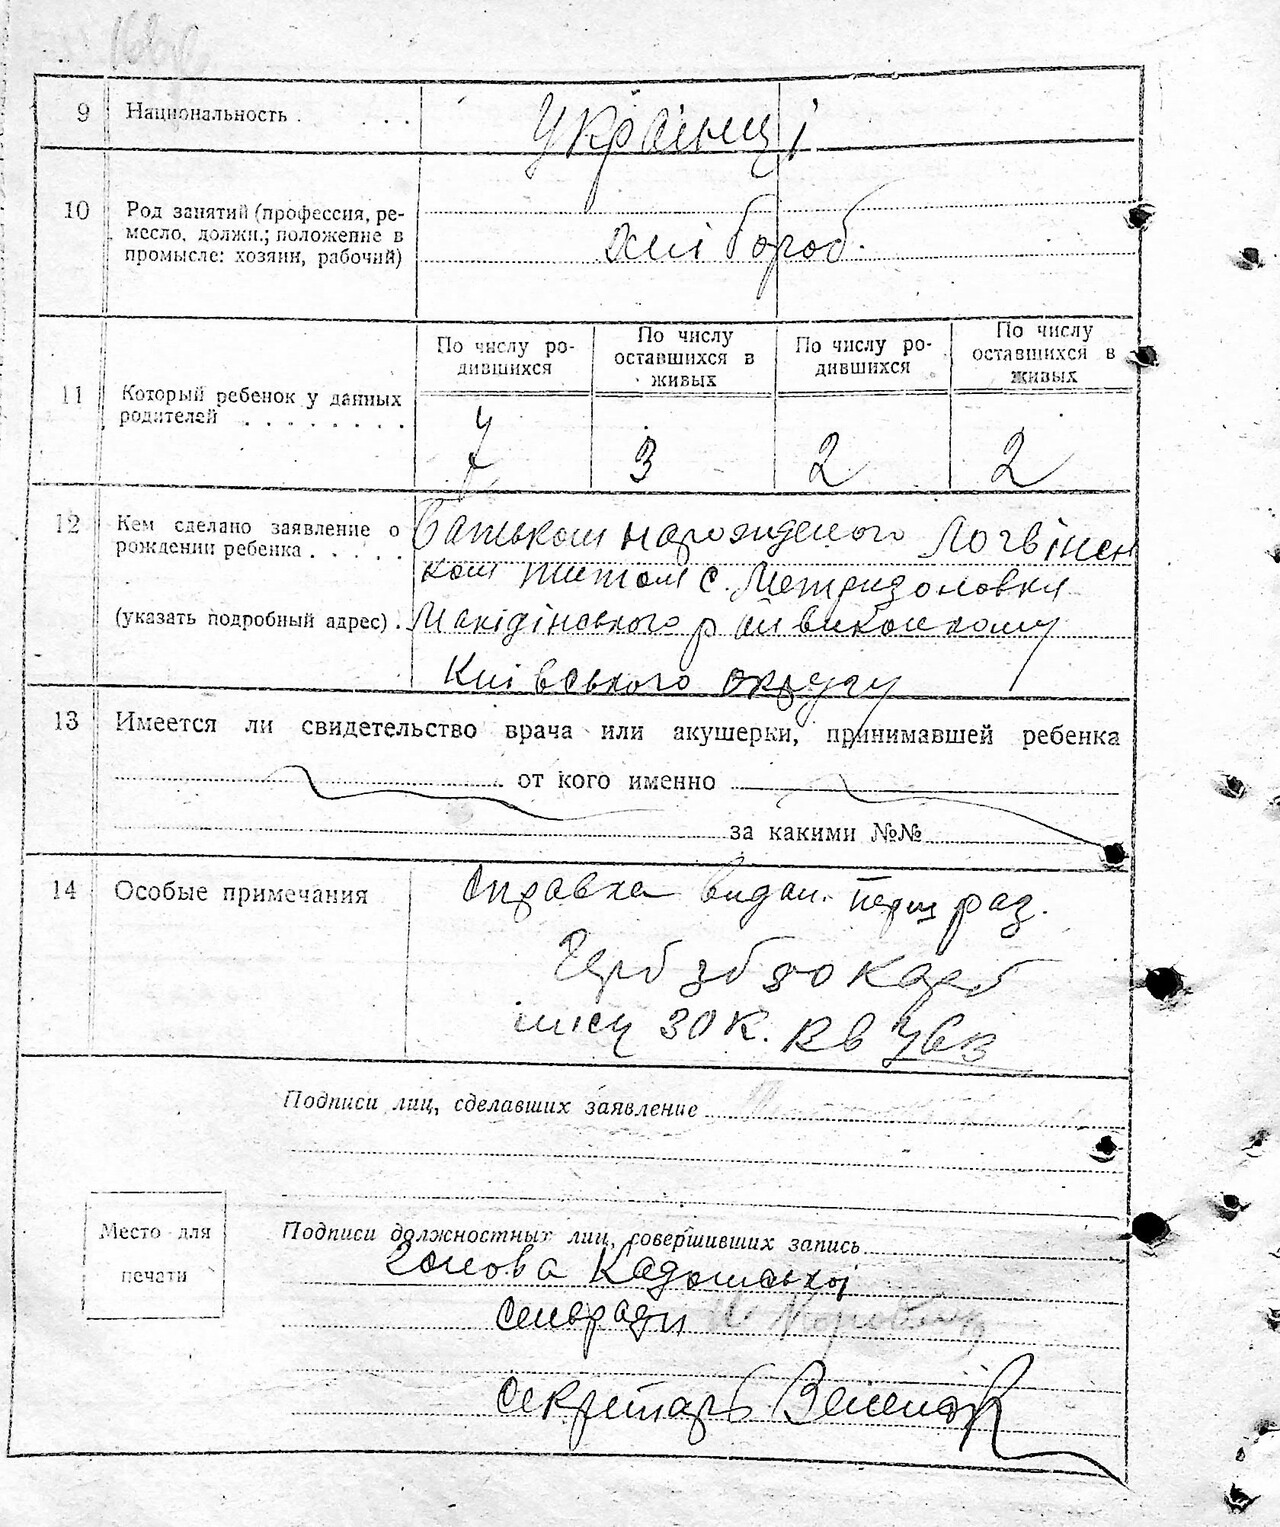 9 Национальность . . . .
Українці
10 Род занятий (профессия, ре-
месло, должн.; положение в
промысле: хозяин, рабочий)
хлібороб.
11 Который ребенок у данных
родителей . . . . . . . .
По числу ро-
дившихся
По числу
оставшихся в
живых
По числу ро-
дившихся
По числу
оставшихся в
живых
7 3 2 2
12 Кем сделано заявление о
рождении ребенка . . . . .
(указать подробный адрес) .
Батьком народженого Логвінен
ком Титом с.
райвиконкому
Київського округу
13 Имеется ли свидетельство врача или акушерки, принимавшей ребенка
от кого именно
за какими №№
14 Особые примечания
Справка видан. перш раз.
Герб зб 30 карб
30 к.
Подписи лиц, сделавших заявление
Место для
печати
Подписи должностных лиц, совершивших запись
Голова
Сельради
Секретарь